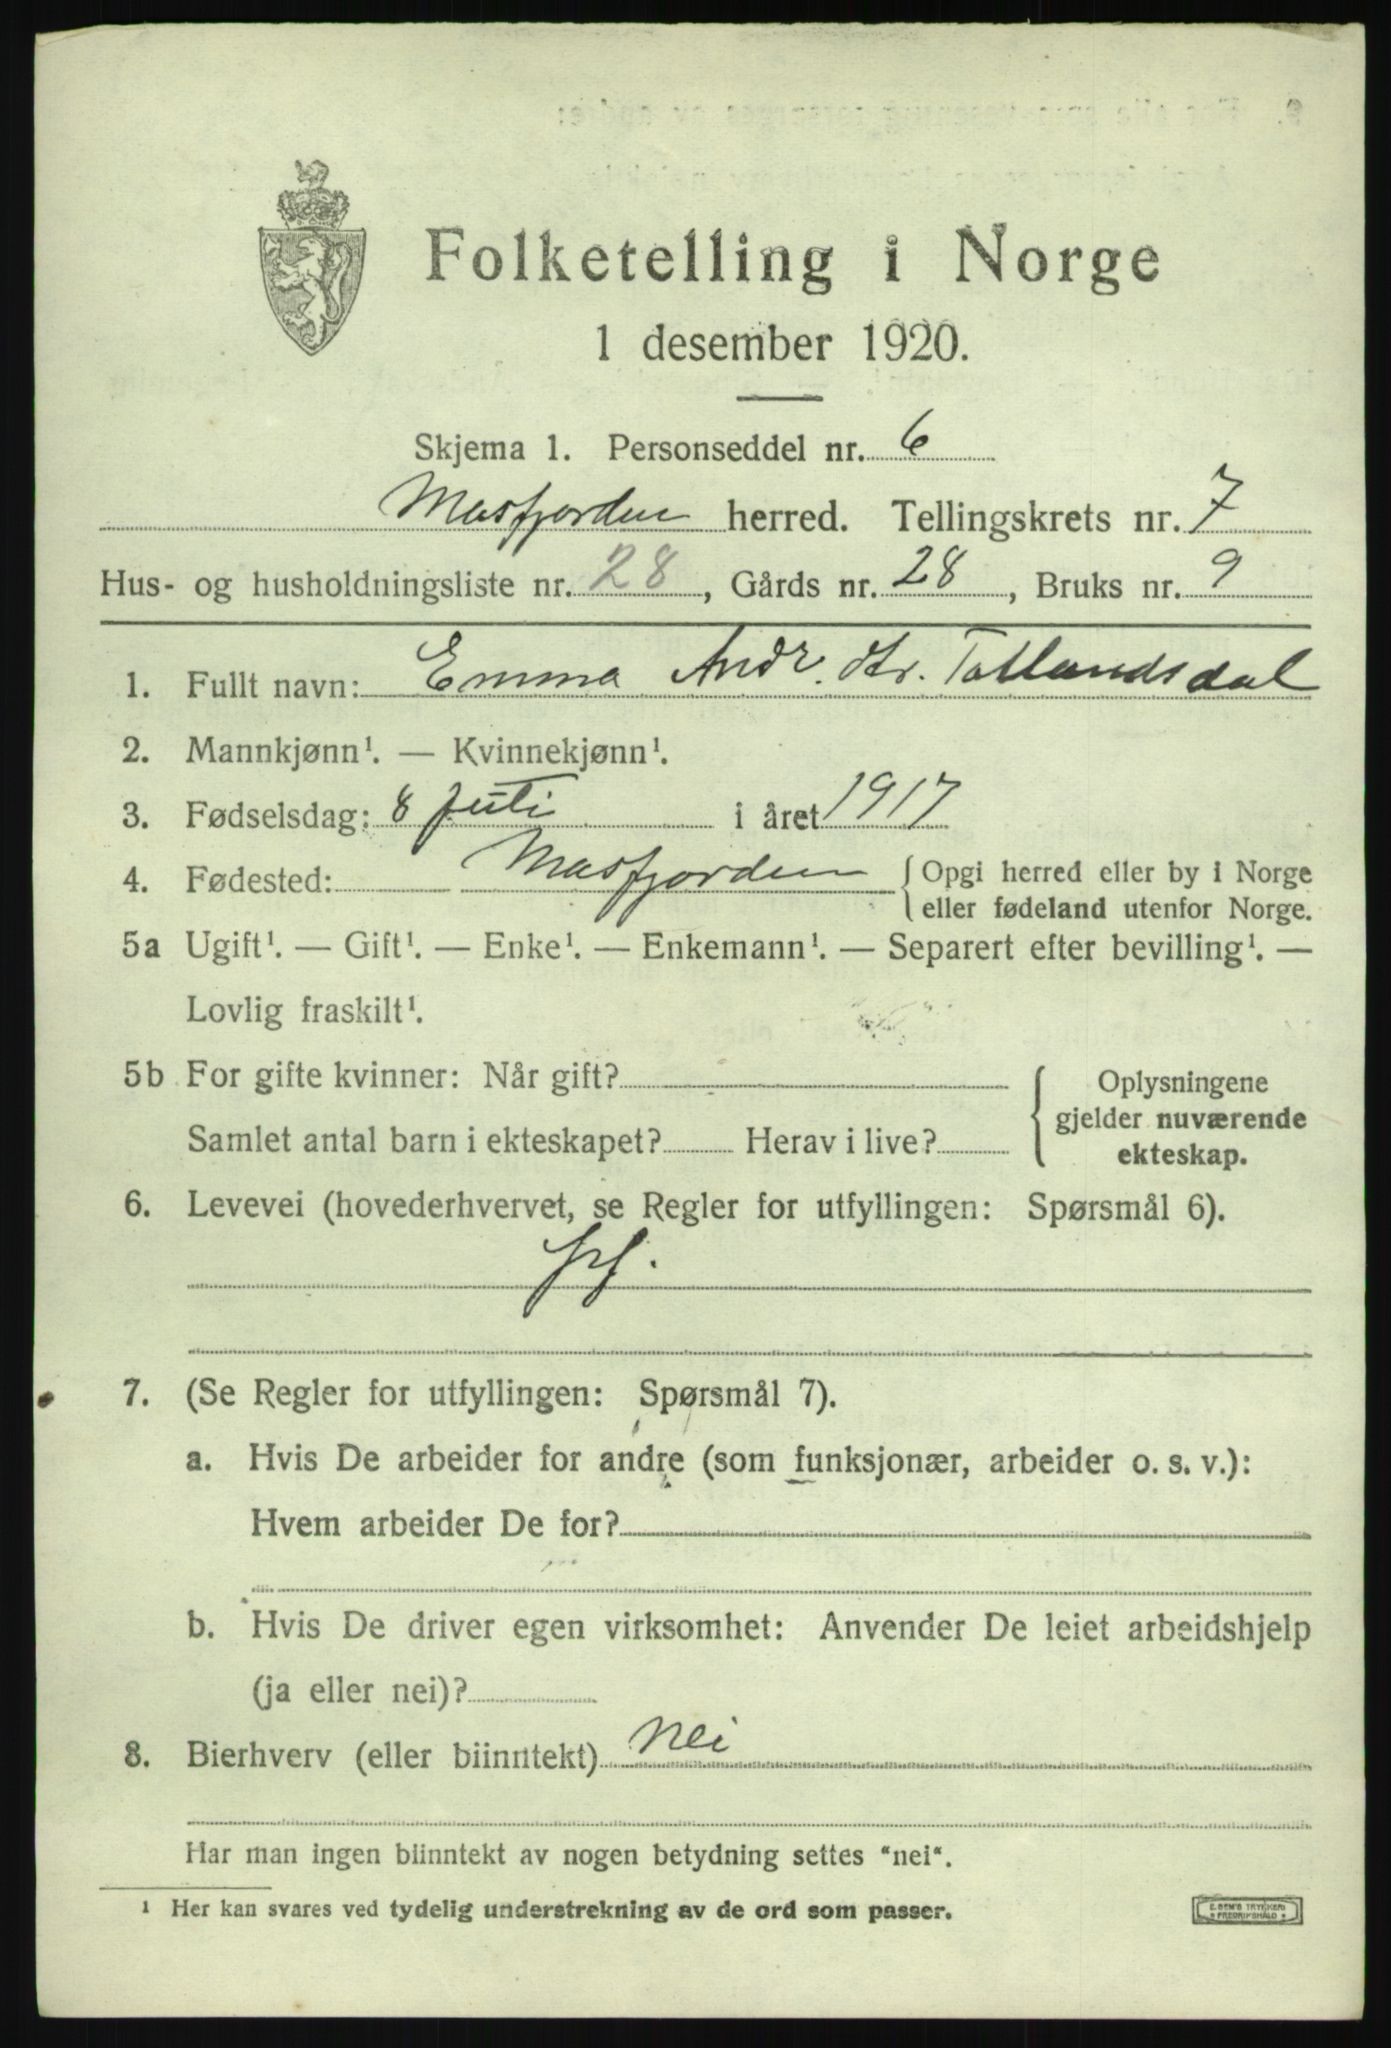 Folketelling i Norge
1 desember 1920.
Skjema 1. Personseddel nr. 6
Masfjorden herred. Tellingskrets nr. 7
Hus- og husholdningsliste nr. 28, Gårds nr. 28, Bruks nr. 9
1. Fullt navn: Emma Andr. dtr. Totlandsdal
2. Mannkjønn¹. — Kvinnekjønn¹.
3. Fødselsdag: 8 juli i året 1917
4. Fødested: Masfjorden { Opgi herred eller by i Norge
eller fødeland utenfor Norge.
5a Ugift¹. — Gift¹. — Enke¹. — Enkemann¹. — Separert efter bevilling¹. —
Lovlig fraskilt¹.
5b For gifte kvinner: Når gift? { Oplysningene
gjelder nuværende
Samlet antal barn i ekteskapet? Herav i live?
ekteskap.
6. Levevei (hovederhvervet, se Regler for utfyllingen: Spørsmål 6).
7. (Se Regler for utfyllingen: Spørsmål 7).
a. Hvis De arbeider for andre (som funksjonær, arbeider o. s. v.):
Hvem arbeider De for?
b. Hvis De driver egen virksomhet: Anvender De leiet arbeidshjelp
(ja eller nei)?
8. Bierhverv (eller biinntekt) nei
Har man ingen biinntekt av nogen betydning settes "nei".
¹ Her kan svares ved tydelig understrekning av de ord som passer.